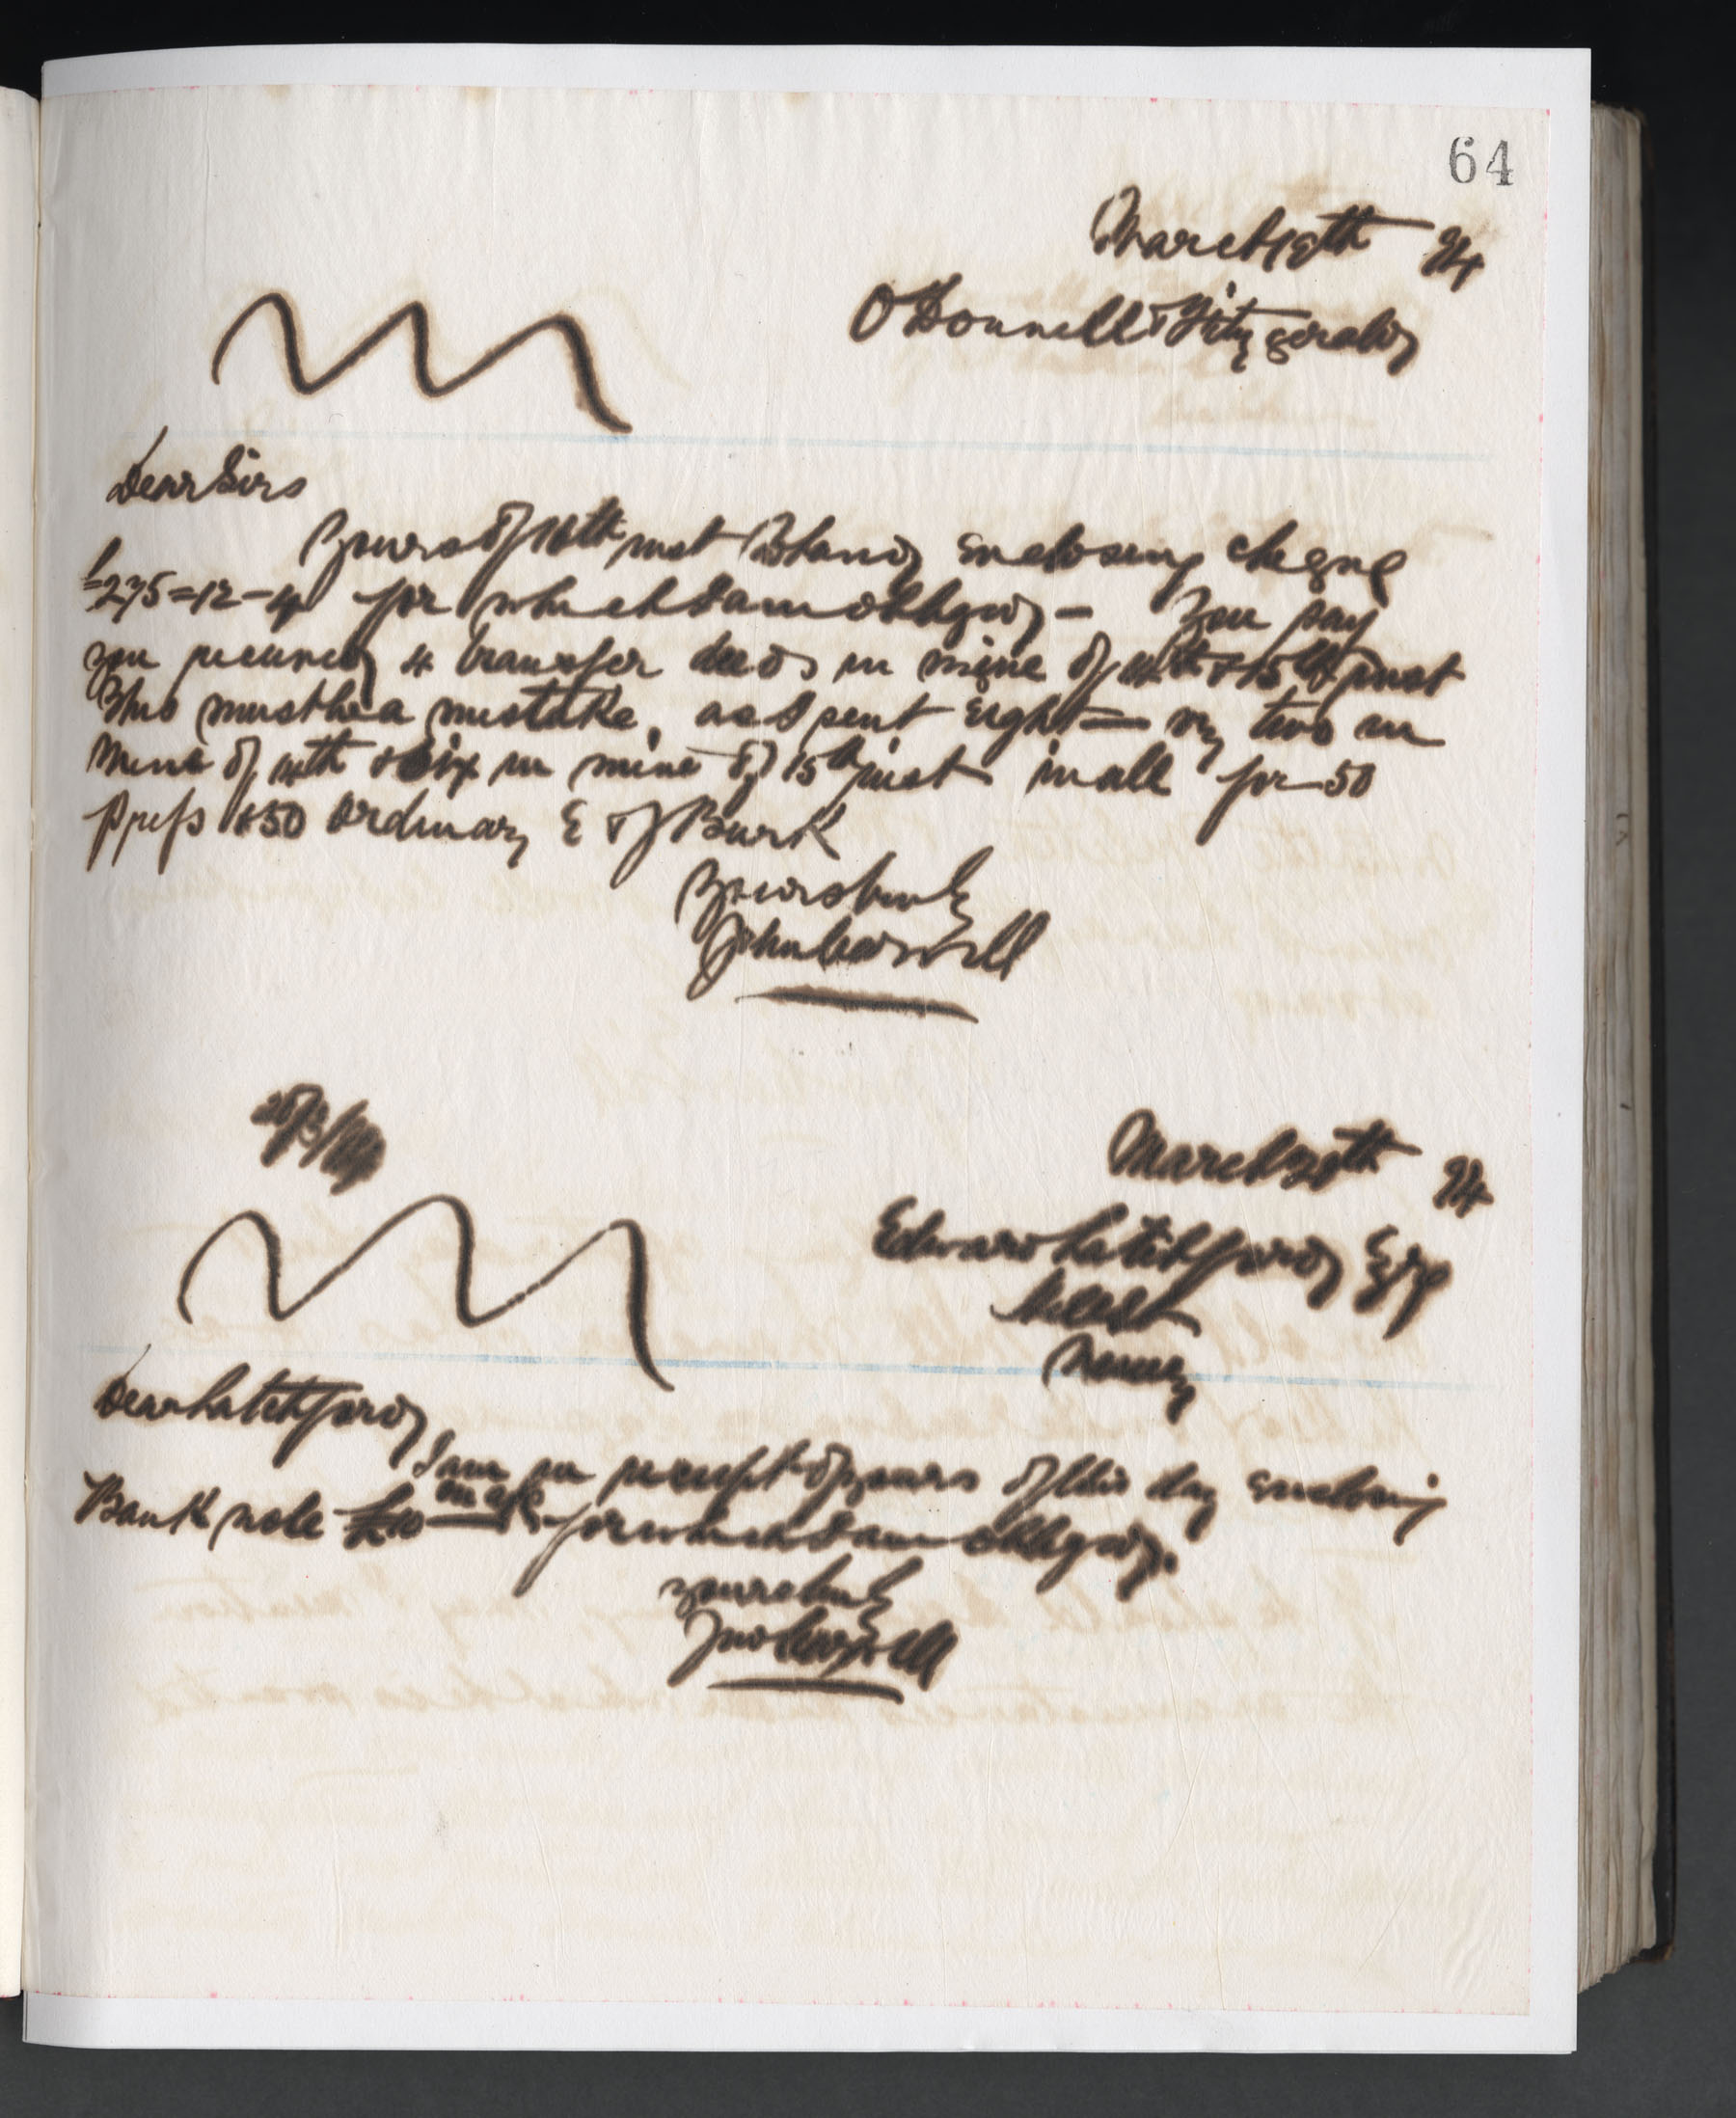 64
March 19th 94
O'Donnell & Fitzgerald
Dear Sirs
Yours of 16th inst to hand enclosing cheque
£275=12-4 for which I am obliged - You say
you received 4 transfer deeds in mine of 14th & 15th inst
This must be a mistake, as I sent eight = viz two in
mine of 14th & six in mine of 15th inst in all for 50
Prefs & 50 Ordinary E & J Burk
Yours truly
John Carroll
20/3/94
March 20th 94
Edward Latchford Esq
Tralee
Dear Latchford
I am in receipt of yours of this day enclosing
Bank note £10 on a/c for which I am obliged.
Yours truly
Jno Carroll